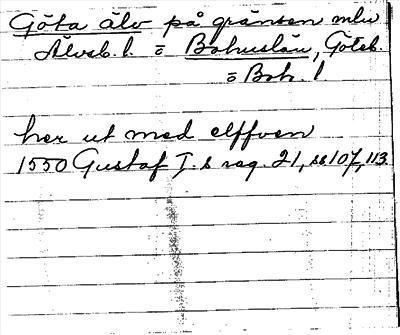 Göta älv på gränsen mlu
Älvsb. l. o Bohuslän, Göteb.
o Boh. l.
her ut med elffven
1550 Gustaf I.s reg. 21, ss 107, 113.